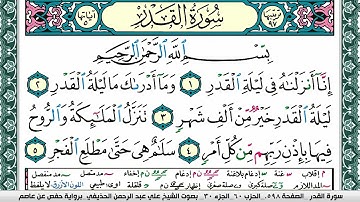 سُورَةُ الْقَدْرِ
بِسْمِ اللَّهِ الرَّحْمَٰنِ الرَّحِيمِ
إِنَّا أَنزَلْنَٰهُ فِي لَيْلَةِ الْقَدْرِ ١ وَمَا أَدْرَىٰكَ مَا لَيْلَةُ الْقَدْرِ ٢
لَيْلَةُ الْقَدْرِ خَيْرٌ مِّنْ أَلْفِ شَهْرٍ ٣ تَنَزَّلُ الْمَلَٰٓئِكَةُ وَالرُّوحُ
فِيهَا بِإِذْنِ رَبِّهِم مِّن كُلِّ أَمْرٍ ٤ سَلَٰمٌ هِيَ حَتَّىٰ مَطْلَعِ الْفَجْرِ ٥
سورة القدر الصفحة ٥٩٨ الحزب ٦٠ الجزء ٣٠ بصوت الشيخ علي عبد الرحمن الحذيفي برواية حفص عن عاصم